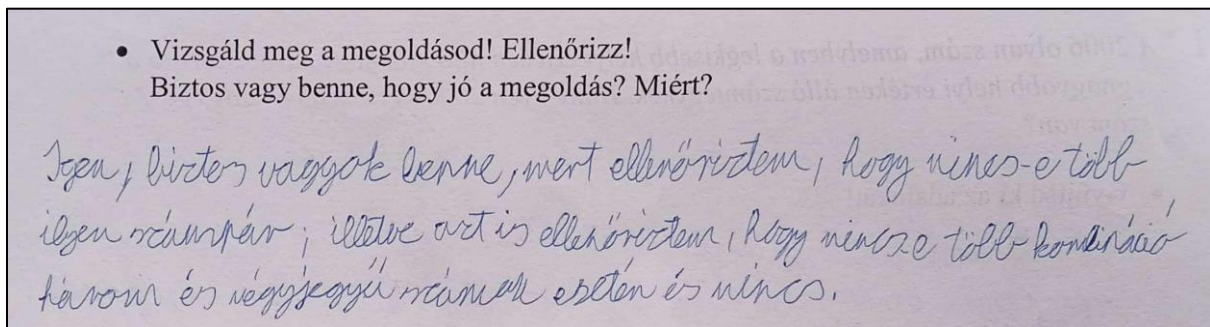 • Vizsgáld meg a megoldásod! Ellenőrizz!
Biztos vagy benne, hogy jó a megoldás? Miért?
Igen, biztos vagyok benne, mert ellenőriztem, hogy nincs-e több
ilyen számpár, illetve azt is ellenőriztem, hogy nincs-e több kombináció
három és négyjegyű számok esetén és nincs.